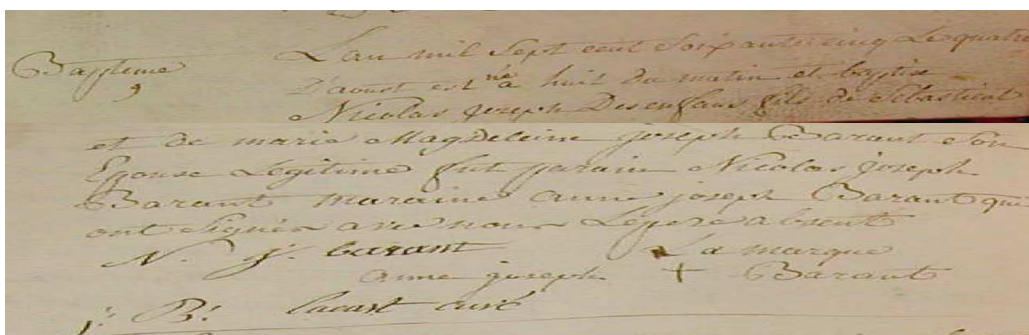 L'an mil Sept cent Soixante cinq Le quatre
Baptême D'aoust est né a huit du matin et baptisé
9 Nicolas joseph Desenfans fils de Sebastien
et de marie Magdeleine joseph Barant Son
Epouse Legitime fut parain Nicolas Joseph
Barant maraine anne joseph Barant qui
ont Signés avec nous Le pere absent
N. j. barant La marque
anne joseph + Barant
j: B: lacart curé